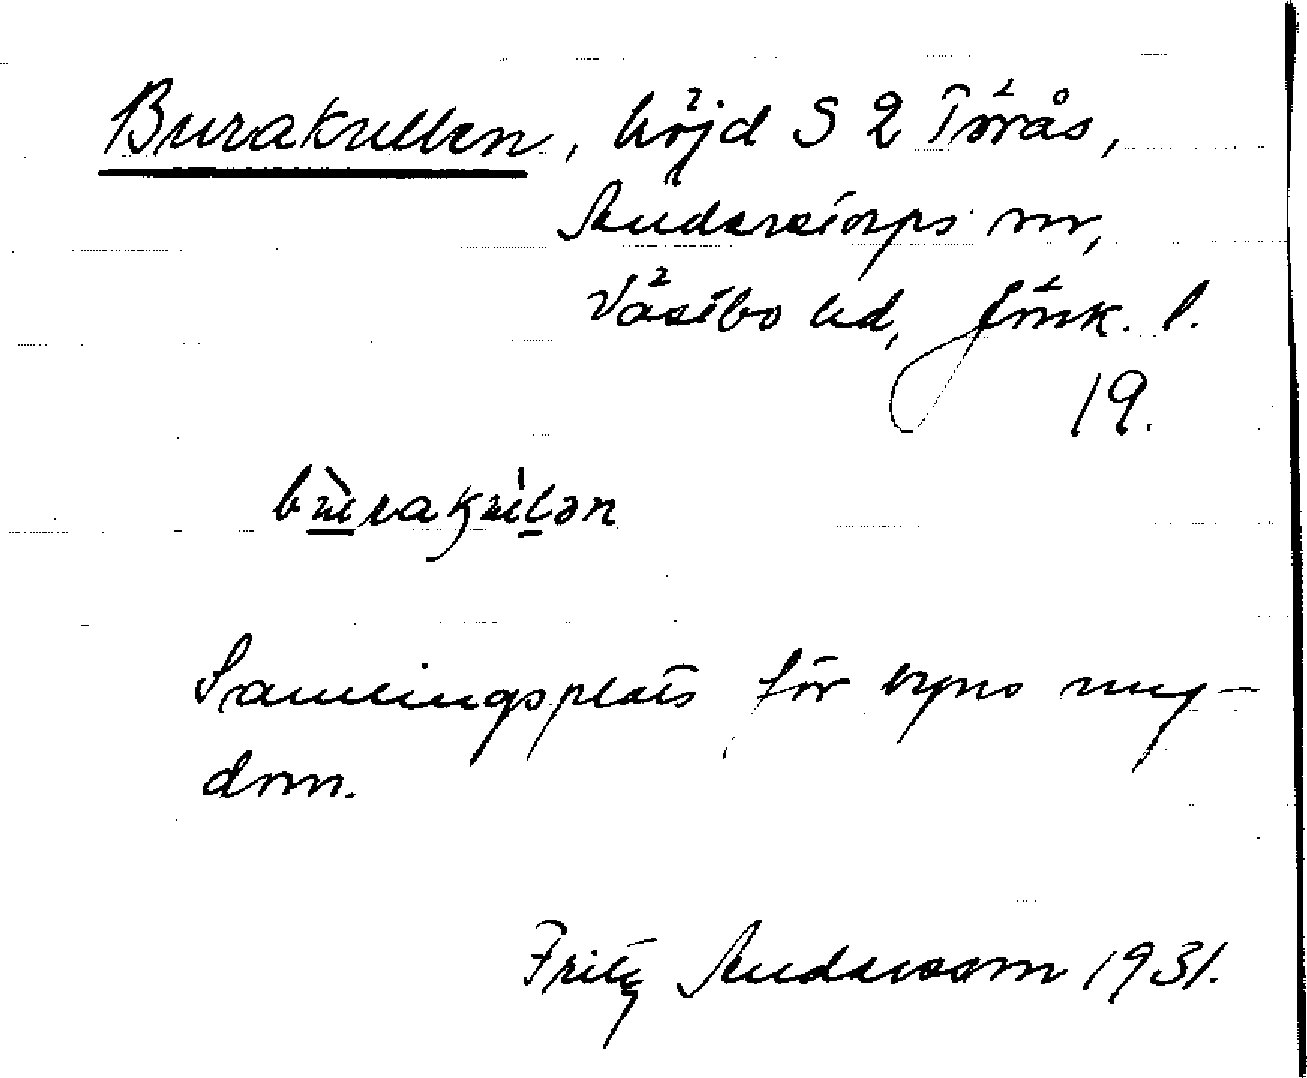 Burakullen, höjd S 2 Törås,
Anderstorps sn,
Västbo hd, Jönk. l.
19.
bùrakúlən
Samlingsplats för byns ung-
dom.
Fritz Andersson 1931.